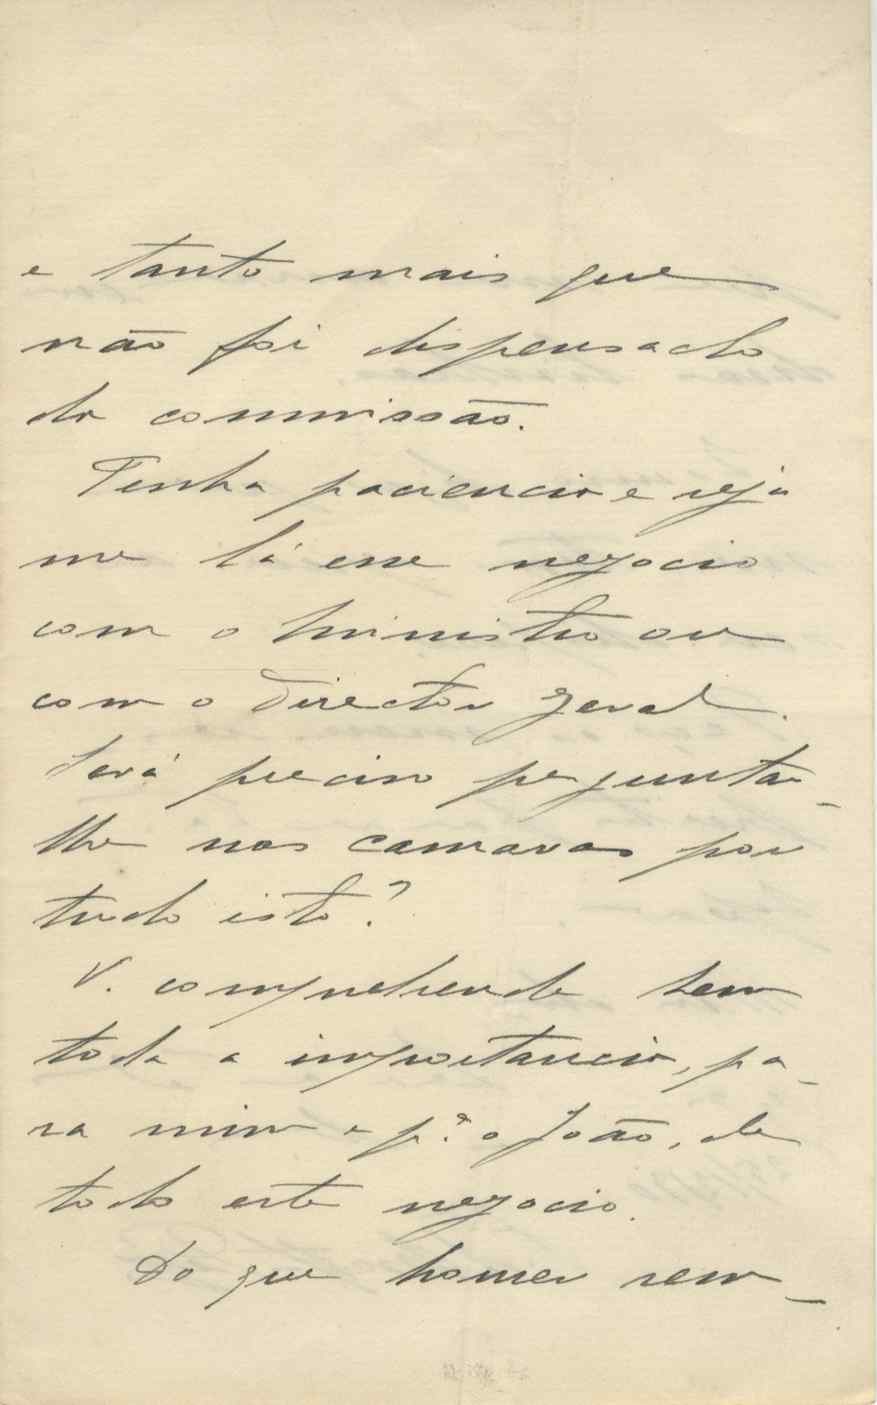 e tanto mais que
não foi dispensado
da commissão.
Tenha paciencia e veja
me lá esse negocio
com o ministro ou
com o Director geral.
Será preciso perguntar-
lhe nas camaras por
tudo isto?
V. comprehende bem
toda a importancia, pa-
ra mim e p.ª o João, de
todo este negocio.
Do que houver rem-